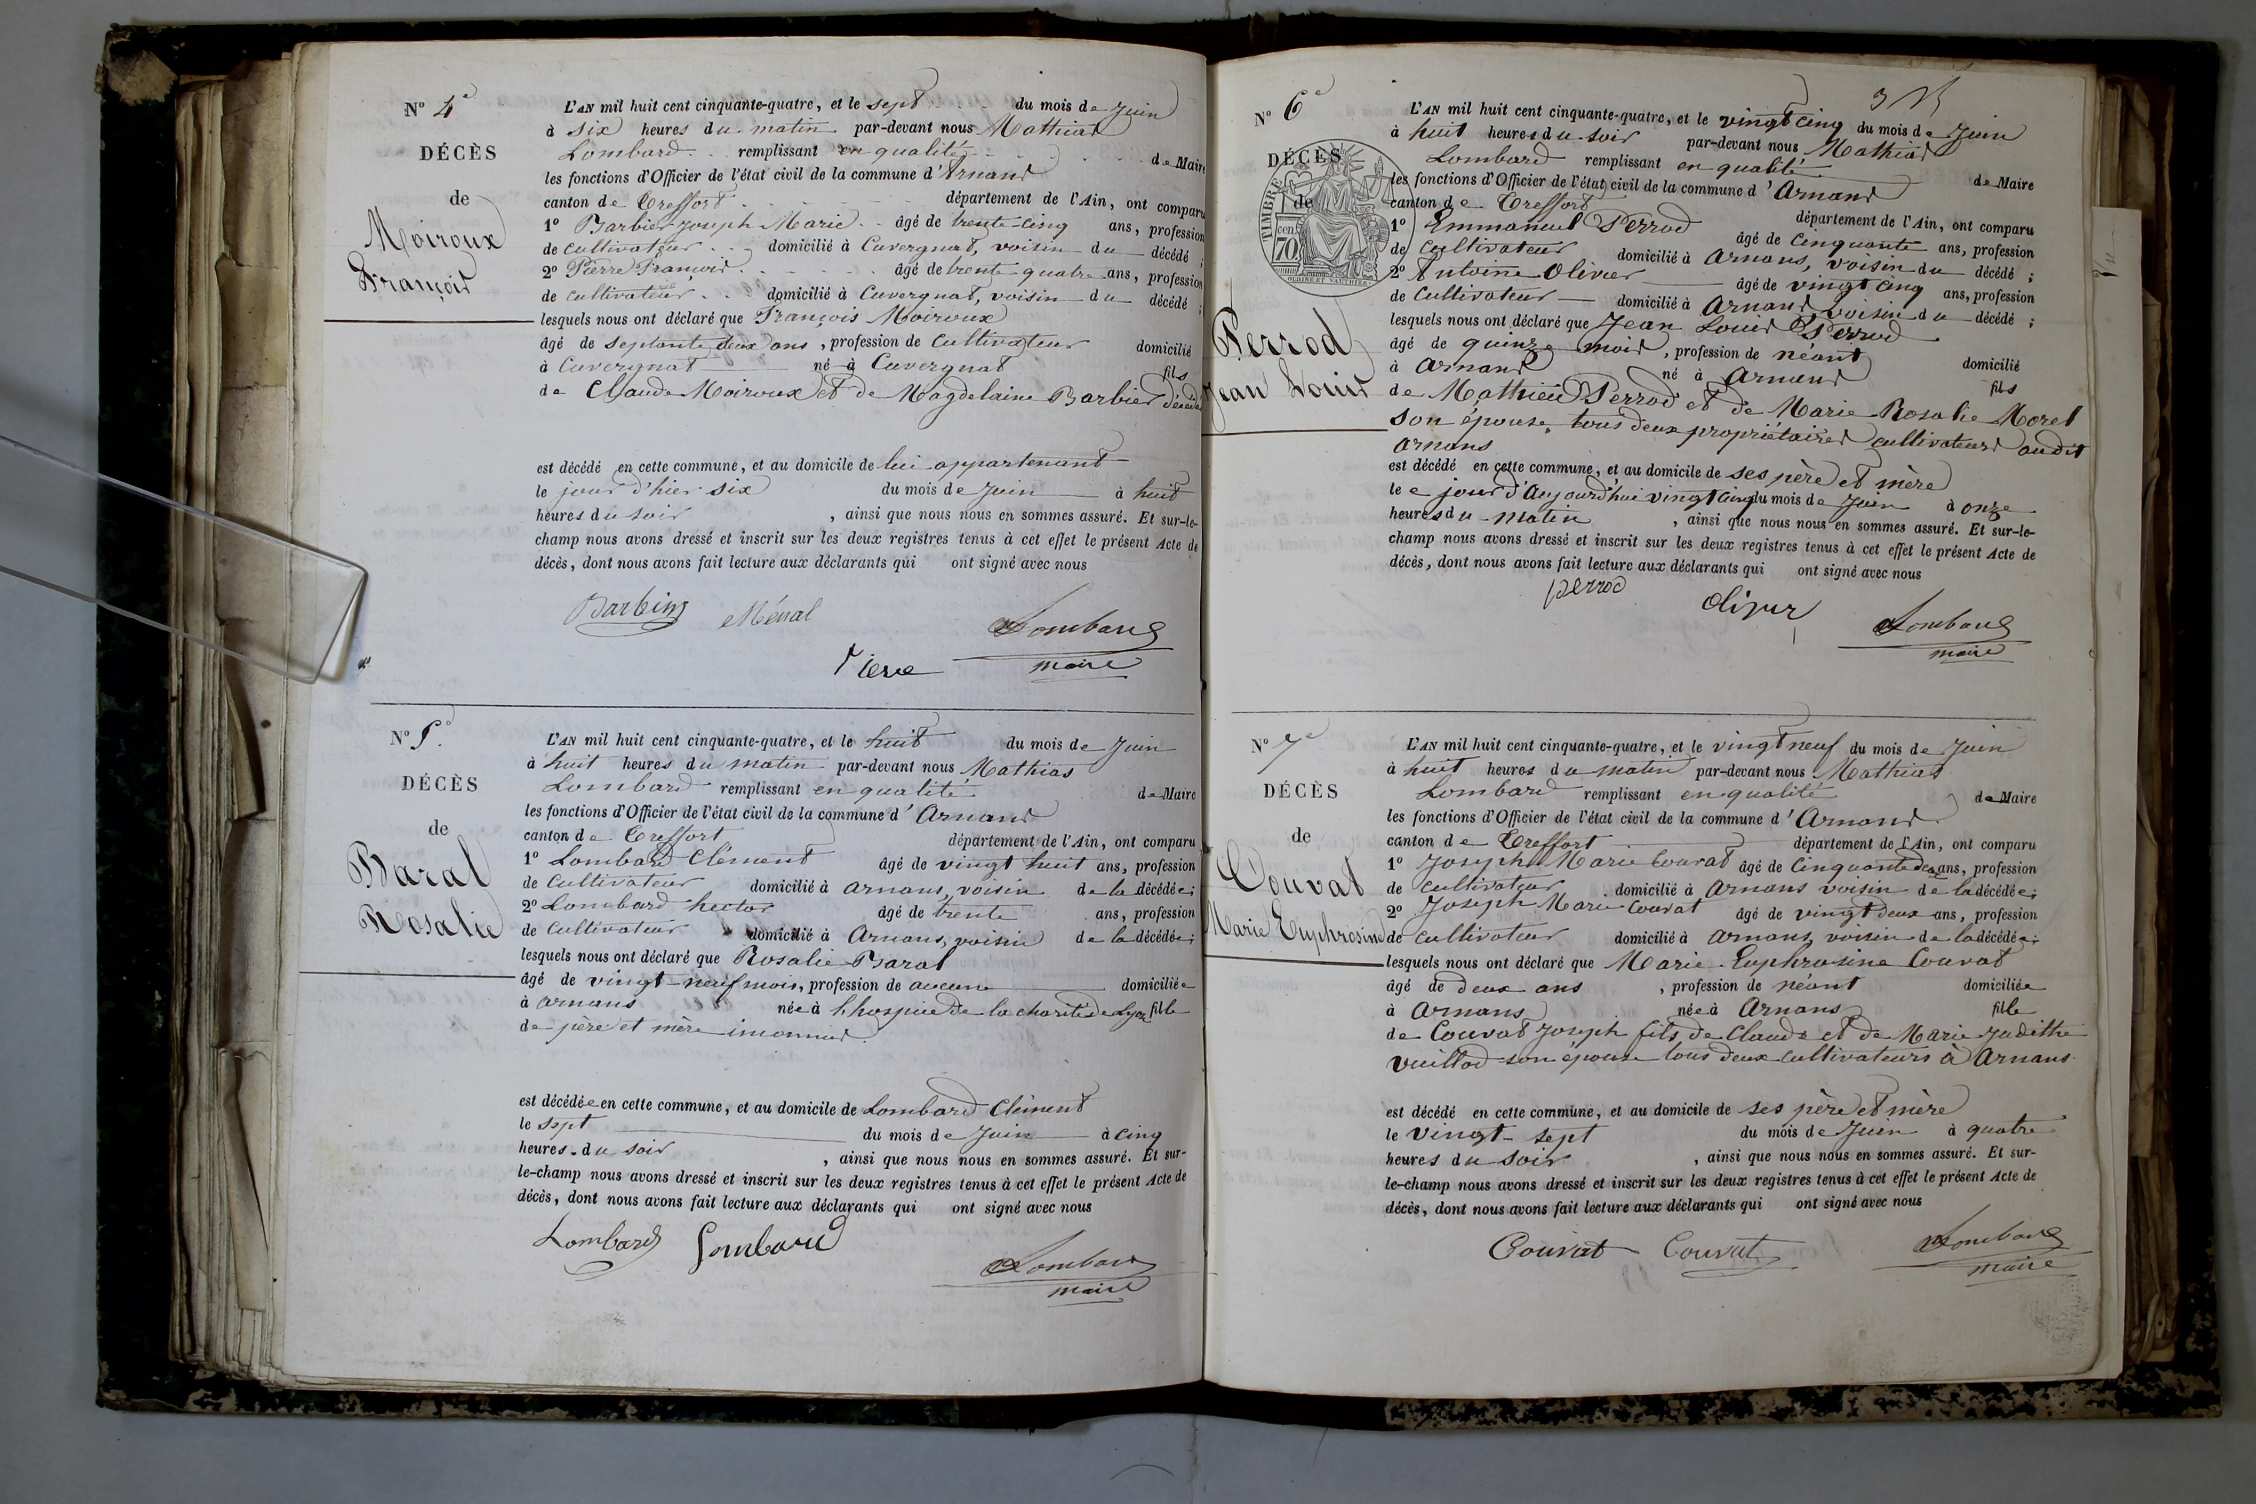 Nº 4e
DÉCÈS
de
Moiroux
François
L'AN mil huit cent cinquante-quatre, et le sept du mois de Juin
à six heures du matin par-devant nous Mathias
Lombard remplissant en qualité de Maire
les fonctions d'Officier de l'état civil de la commune d'Arnans
canton de Treffort département de l'Ain, ont comparu
1º Barbier Joseph Marie âgé de trente-cinq ans, profession
de cultivateur domicilié à Cuvergnat, voisin du décédé ;
2º Pierre François âgé de trente quatre ans, profession
de cultivateur domicilié à Cuvergnat, voisin du décédé ;
lesquels nous ont déclaré que François Moiroux
âgé de septante deux ans, profession de Cultivateur domicilié
à Cuvergnat né à Cuvergnat fils
de Claude Moiroux et de Magdelaine Barbier
est décédé en cette commune, et au domicile de lui appartenant
le jour d'hier six du mois de Juin à huit
heures du soir, ainsi que nous nous en sommes assuré. Et sur-le-
champ nous avons dressé et inscrit sur les deux registres tenus à cet effet le présent Acte de
décès, dont nous avons fait lecture aux déclarants qui ont signé avec nous
Lombard
maire
Nº 5e
DÉCÈS
de
Baral
Rosalie
L'AN mil huit cent cinquante-quatre, et le huit du mois de Juin
à huit heures du matin par-devant nous Mathias
Lombard remplissant en qualité de Maire
les fonctions d'Officier de l'état civil de la commune d'Arnans
canton de Treffort département de l'Ain, ont comparu
1º Lombard Clément âgé de vingt huit ans, profession
de Cultivateur domicilié à arnans, voisin de la décédée;
2º Lombard hector âgé de trente ans, profession
de cultivateur domicilié à Arnans, voisin de la décédée;
lesquels nous ont déclaré que Rosalie Baral
âgé de vingt-neuf mois, profession de aucune domiciliée
à arnans née à l'hospice de la charité de Lyon fille
de père et mère inconnus
est décédée en cette commune, et au domicile de Lombard Clément
le sept du mois de Juin à cinq
heures du soir, ainsi que nous nous en sommes assuré. Et sur-
le-champ nous avons dressé et inscrit sur les deux registres tenus à cet effet le présent Acte de
décès, dont nous avons fait lecture aux déclarants qui ont signé avec nous
Lombard Lombard
Lombard
maire
Nº 6e
DÉCÈS
de
TIMBRE
70
Perrod
Jean Louis
L'AN mil huit cent cinquante-quatre, et le vingt cinq du mois de Juin
à huit heures du soir par-devant nous Mathias
Lombard remplissant en qualité de Maire
les fonctions d'Officier de l'état civil de la commune d'Arnans
canton de Treffort département de l'Ain, ont comparu
1º Emmanuel Perrod âgé de Cinquante ans, profession
de cultivateur domicilié à Arnans, voisin du décédé ;
2º Antoine Olivier âgé de vingt cinq ans, profession
de Cultivateur domicilié à Arnans, voisin du décédé ;
lesquels nous ont déclaré que Jean Louis Perrod
âgé de quinze mois, profession de néant domicilié
à arnans né à arnans fils
de Mathieu Perrod et de Marie Rosalie Morel
son épouse, tous deux propriétaires cultivateurs audit
arnans
est décédé en cette commune, et au domicile de ses père et mère
le jour d'aujourd'hui vingt cinq du mois de Juin à onze
heures du matin, ainsi que nous nous en sommes assuré. Et sur-le-
champ nous avons dressé et inscrit sur les deux registres tenus à cet effet le présent Acte de
décès, dont nous avons fait lecture aux déclarants qui ont signé avec nous
perrod
Lombard
maire
Nº 7e
DÉCÈS
de
Couvat
Marie Euphrosine
L'AN mil huit cent cinquante-quatre, et le vingt neuf du mois de Juin
à huit heures du matin par-devant nous Mathias
Lombard remplissant en qualité de Maire
les fonctions d'Officier de l'état civil de la commune d'Arnans
canton de Treffort département de l'Ain, ont comparu
1º Joseph Marie Couvat âgé de Cinquante deux ans, profession
de cultivateur domicilié à Arnans voisin de la décédée;
2º Joseph Marie Couvat âgé de vingt deux ans, profession
de cultivateur domicilié à arnans, voisin de la décédée;
lesquels nous ont déclaré que Marie Euphrosine Couvat
âgé de deux ans, profession de néant domiciliée
à Arnans née à Arnans fille
de Couvat Joseph fils de Claude et de Marie Judithe
Vuillod son épouse tous deux cultivateurs à Arnans
est décédé en cette commune, et au domicile de ses père et mère
le vingt-sept du mois de Juin à quatre
heures du soir, ainsi que nous nous en sommes assuré. Et sur-
le-champ nous avons dressé et inscrit sur les deux registres tenus à cet effet le présent Acte de
décès, dont nous avons fait lecture aux déclarants qui ont signé avec nous
Couvat Couvat
Lombard
maire